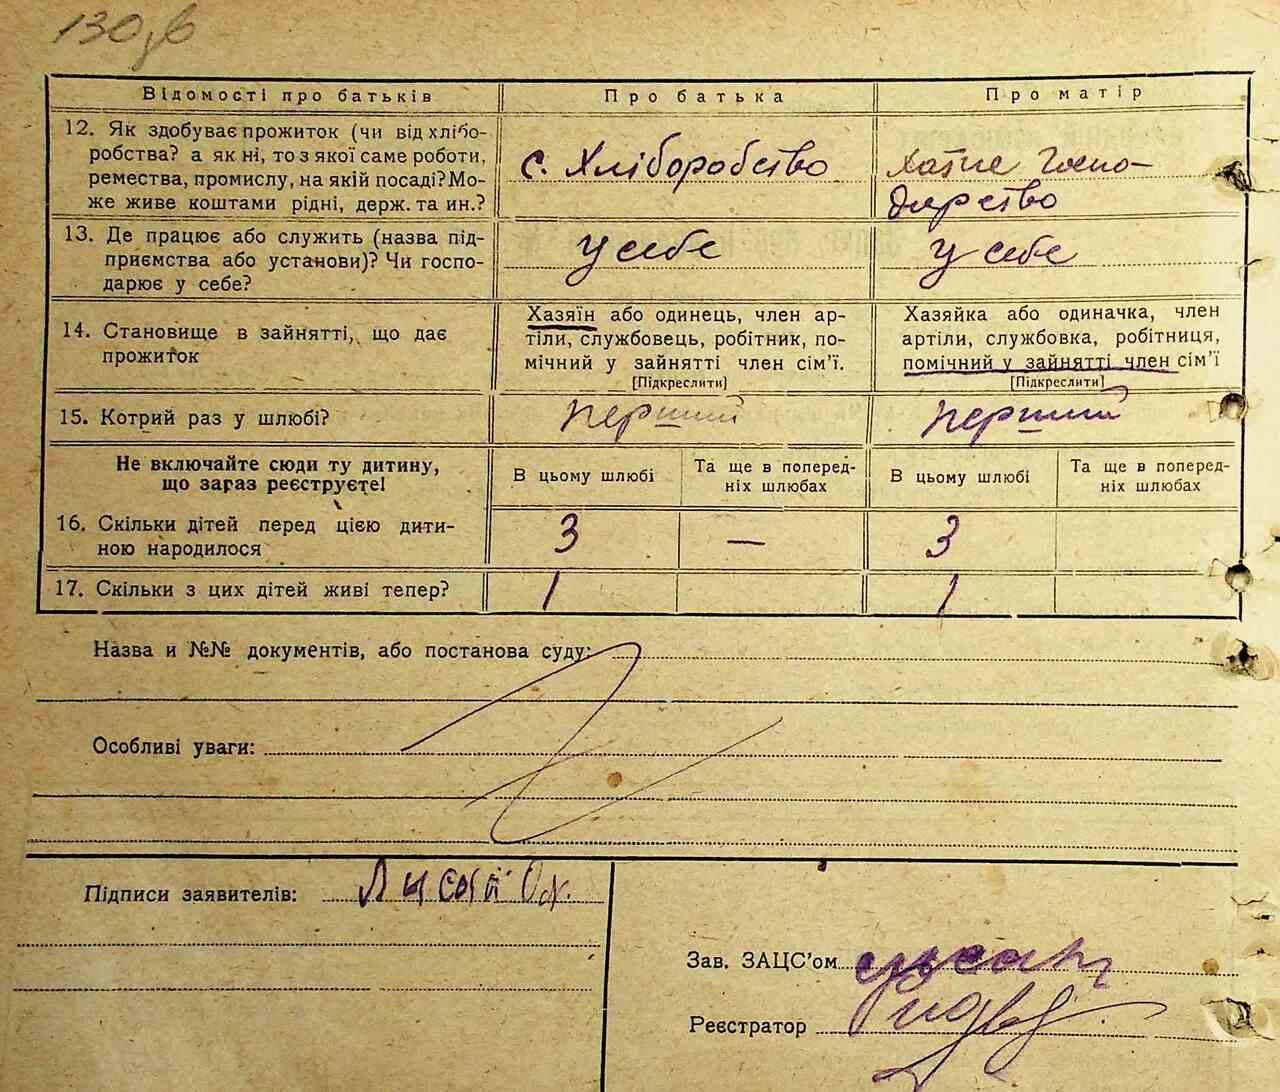 130зв
Відомості про батьків
Про батька
Про матір
12. Як здобуває прожиток (чи від хлібо-
робства? а як ні, то з якої саме роботи,
ремества, промислу, на якій посаді? Мо-
же живе коштами рідні, держ. та ин.?
с. Хліборобство
Хатнє Госпо-
дарство
13. Де працює або служить (назва під-
приємства або установи)? Чи госпо-
дарює у себе?
У себе
У себе
14. Становище в зайнятті, що дає
прожиток
Хазяїн або одинець, член ар-
тіли, службовець, робітник, по-
мічний у зайнятті член сім'ї.
[Підкреслити]
Хазяйка або одиначка, член
артіли, службовка, робітниця,
помічний у зайнятті член сім'ї
[Підкреслити]
15. Котрий раз у шлюбі?
перший
перший
Не включайте сюди ту дитину,
що зараз реєструєте!
В цьому шлюбі
Та ще в поперед-
ніх шлюбах
В цьому шлюбі
Та ще в поперед-
ніх шлюбах
16. Скільки дітей перед цією дити-
ною народилося
3
—
3
17. Скільки з цих дітей живі тепер?
1
1
Назва и №№ документів, або постанова суду:
Особливі уваги:
Підписи заявителів: Лисой Ох.
Зав. ЗАЦС'ом
Реєстратор